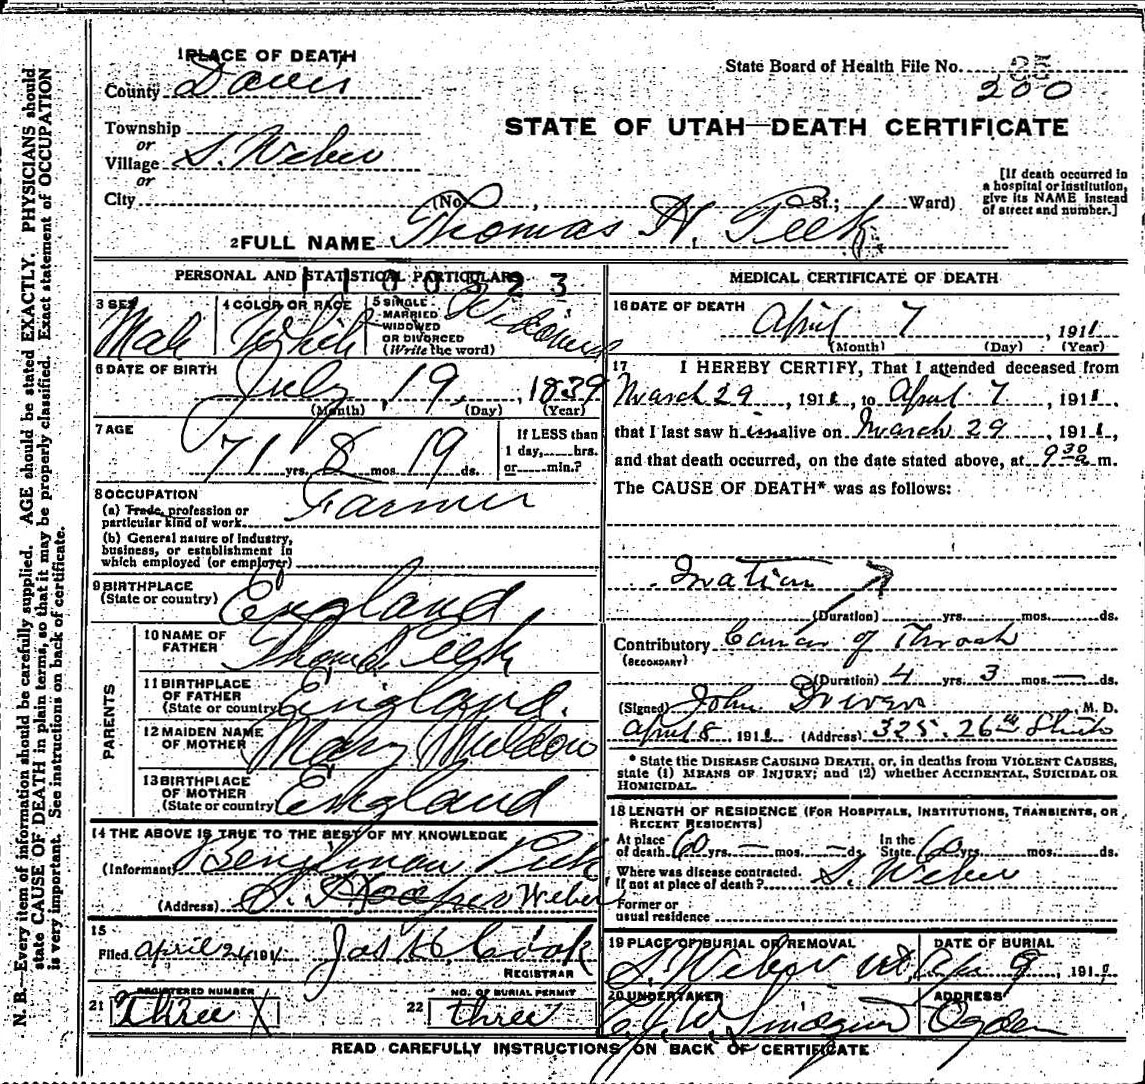 1 PLACE OF DEATH
County Davis
Township
or
Village S. Weber
or
City
State Board of Health File No.
200
STATE OF UTAH—DEATH CERTIFICATE
(No. , St.; Ward)
[If death occurred in
a hospital or institution,
give its NAME instead
of street and number.]
2 FULL NAME Thomas H. Peek
PERSONAL AND STATISTICAL PARTICULARS
3 SEX Male
4 COLOR OR RACE White
5 SINGLE
MARRIED
WIDOWED
OR DIVORCED
(Write the word)
6 DATE OF BIRTH July 19, 1839
(Month) (Day) (Year)
7 AGE
71 yrs. 8 mos. 19 ds.
If LESS than
1 day, hrs.
or min.?
8 OCCUPATION Farmer
(a) Trade, profession or
particular kind of work
(b) General nature of industry,
business, or establishment in
which employed (or employer)
9 BIRTHPLACE
(State or country) England
PARENTS
10 NAME OF
FATHER Peek
11 BIRTHPLACE
OF FATHER
(State or country) England.
12 MAIDEN NAME
OF MOTHER Mary
13 BIRTHPLACE
OF MOTHER
(State or country) England
14 THE ABOVE IS TRUE TO THE BEST OF MY KNOWLEDGE
(Informant) Peek
(Address) S. Hooper Weber
15
Filed April 24 191
Jos H. Cook
REGISTRAR
21 REGISTERED NUMBER
Three X
22 NO. OF BURIAL PERMIT
three
MEDICAL CERTIFICATE OF DEATH
16 DATE OF DEATH
April 7, 1911
(Month) (Day) (Year)
17 I HEREBY CERTIFY, That I attended deceased from
March 29, 1911, to April 7, 1911,
that I last saw him alive on March 29, 1911,
and that death occurred, on the date stated above, at 9 30 a m.
The CAUSE OF DEATH* was as follows:
(Duration) yrs. mos. ds.
Contributory Cancer of Throat
(SECONDARY)
(Duration) 4 yrs. 3 mos. — ds.
(Signed) John M. D.
April 8 1911 (Address) 325. 26th
* State the DISEASE CAUSING DEATH, or, in deaths from VIOLENT CAUSES,
state (1) MEANS OF INJURY; and (2) whether ACCIDENTAL, SUICIDAL OR
HOMICIDAL.
18 LENGTH OF RESIDENCE (FOR HOSPITALS, INSTITUTIONS, TRANSIENTS, OR
RECENT RESIDENTS)
At place
of death 60 yrs. — mos. — ds.
In the
State 60 yrs. mos. ds.
Where was disease contracted,
If not at place of death? S. Weber
Former or
usual residence
19 PLACE OF BURIAL OR REMOVAL
S. Weber Ut.
DATE OF BURIAL
Apr 9, 1911
20 UNDERTAKER
ADDRESS
Ogden
READ CAREFULLY INSTRUCTIONS ON BACK OF CERTIFICATE
N. B.—Every item of information should be carefully supplied. AGE should be stated EXACTLY. PHYSICIANS should
state CAUSE OF DEATH in plain terms, so that it may be properly classified. Exact statement of OCCUPATION
is very important. See instructions on back of certificate.